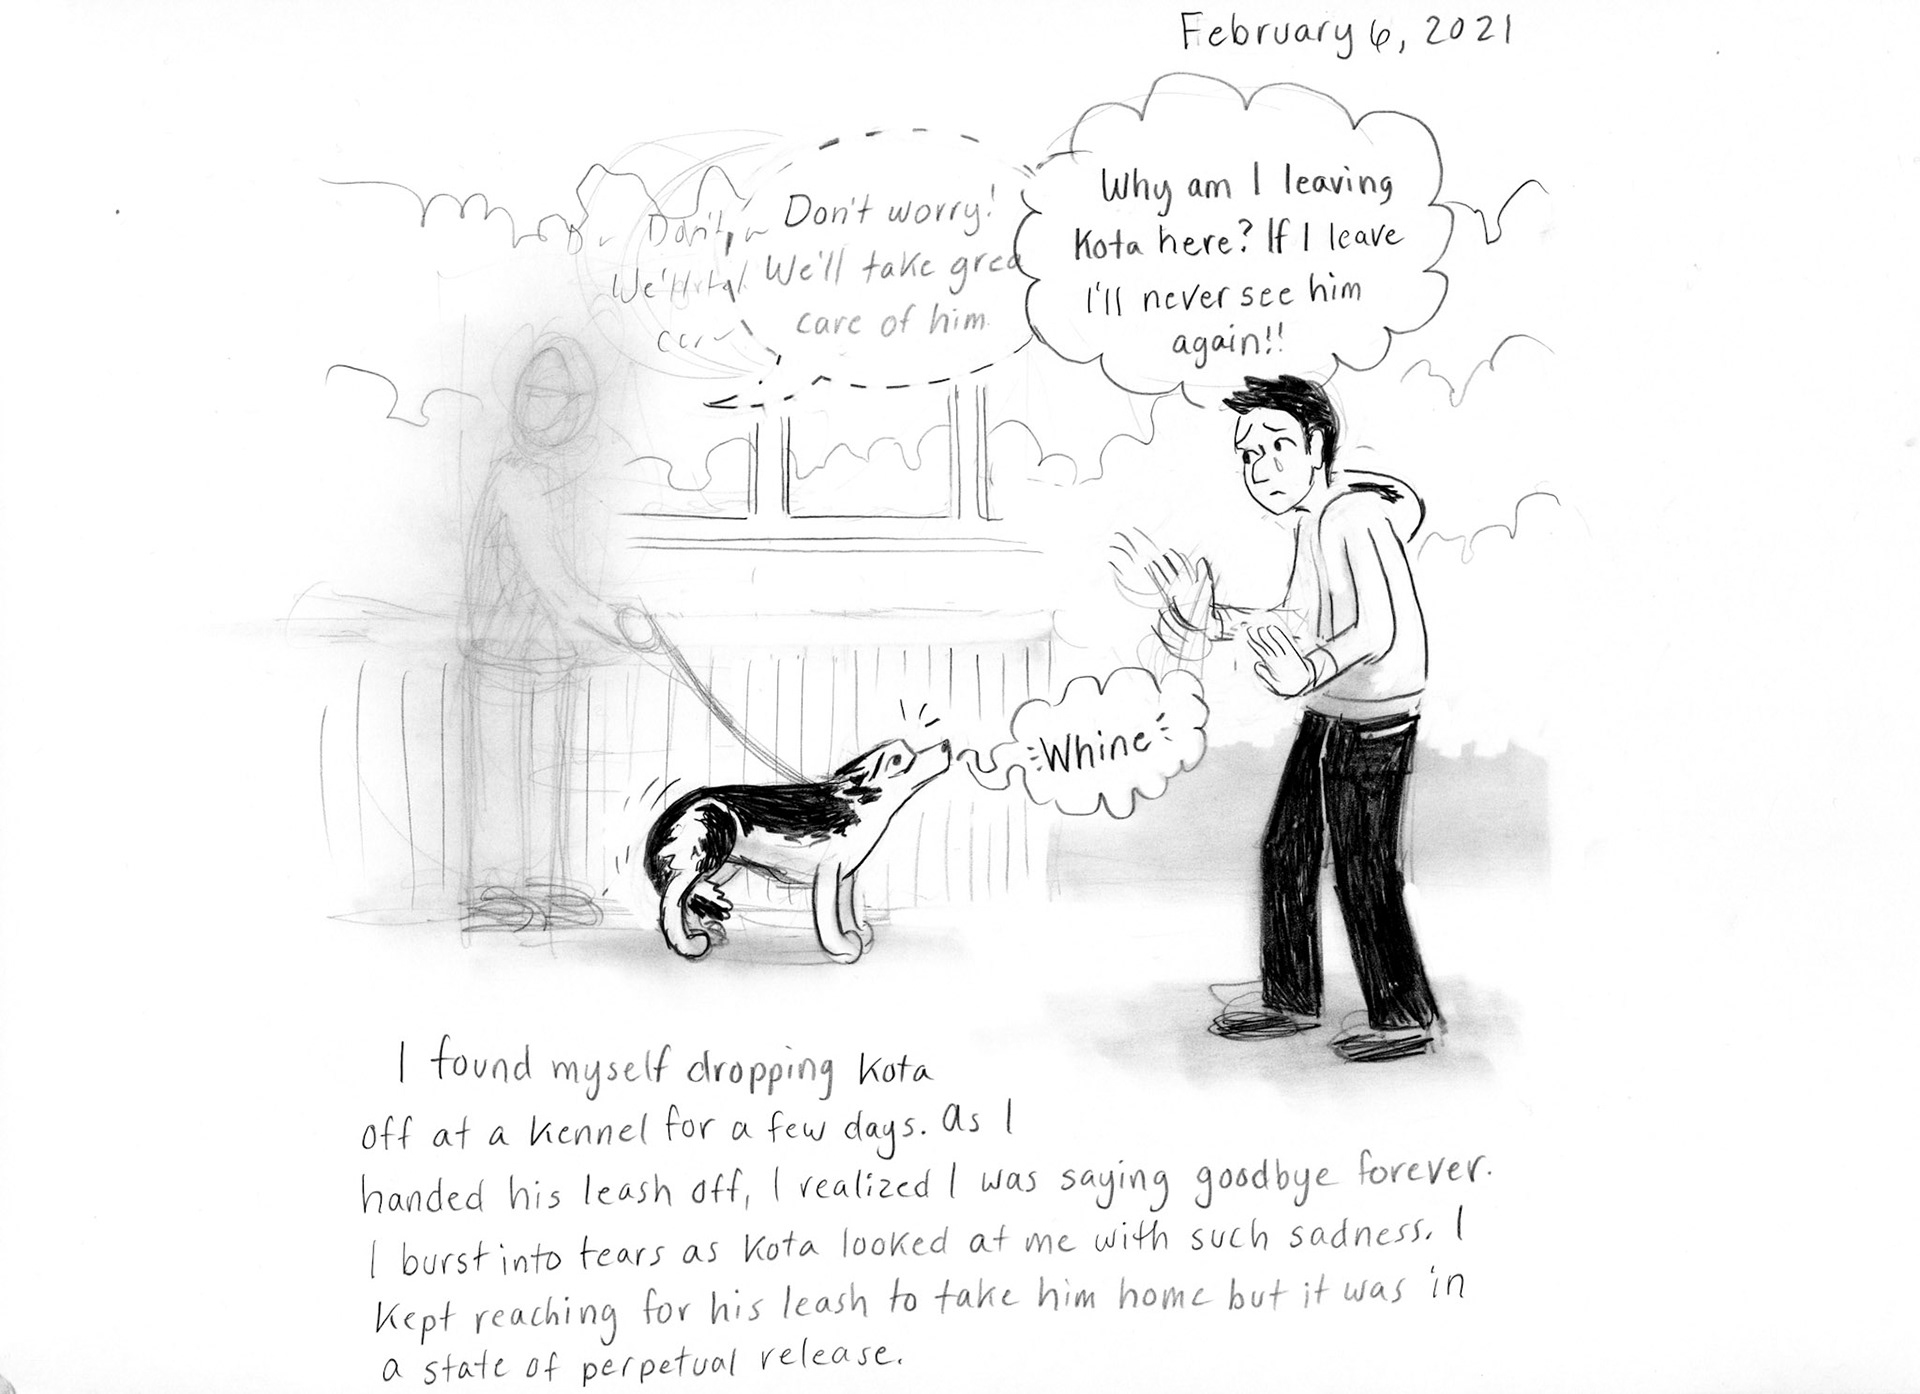 February 6, 2021
Don't
We'll
Don't worry!
We'll take grea
care of him.
Why am I leaving
Kota here? If I leave
I'll never see him
again!!
Whine
I found myself dropping Kota
off at a kennel for a few days. As I
handed his leash off, I realized I was saying goodbye forever.
I burst into tears as Kota looked at me with such sadness. I
kept reaching for his leash to take him home but it was in
a state of perpetual release.